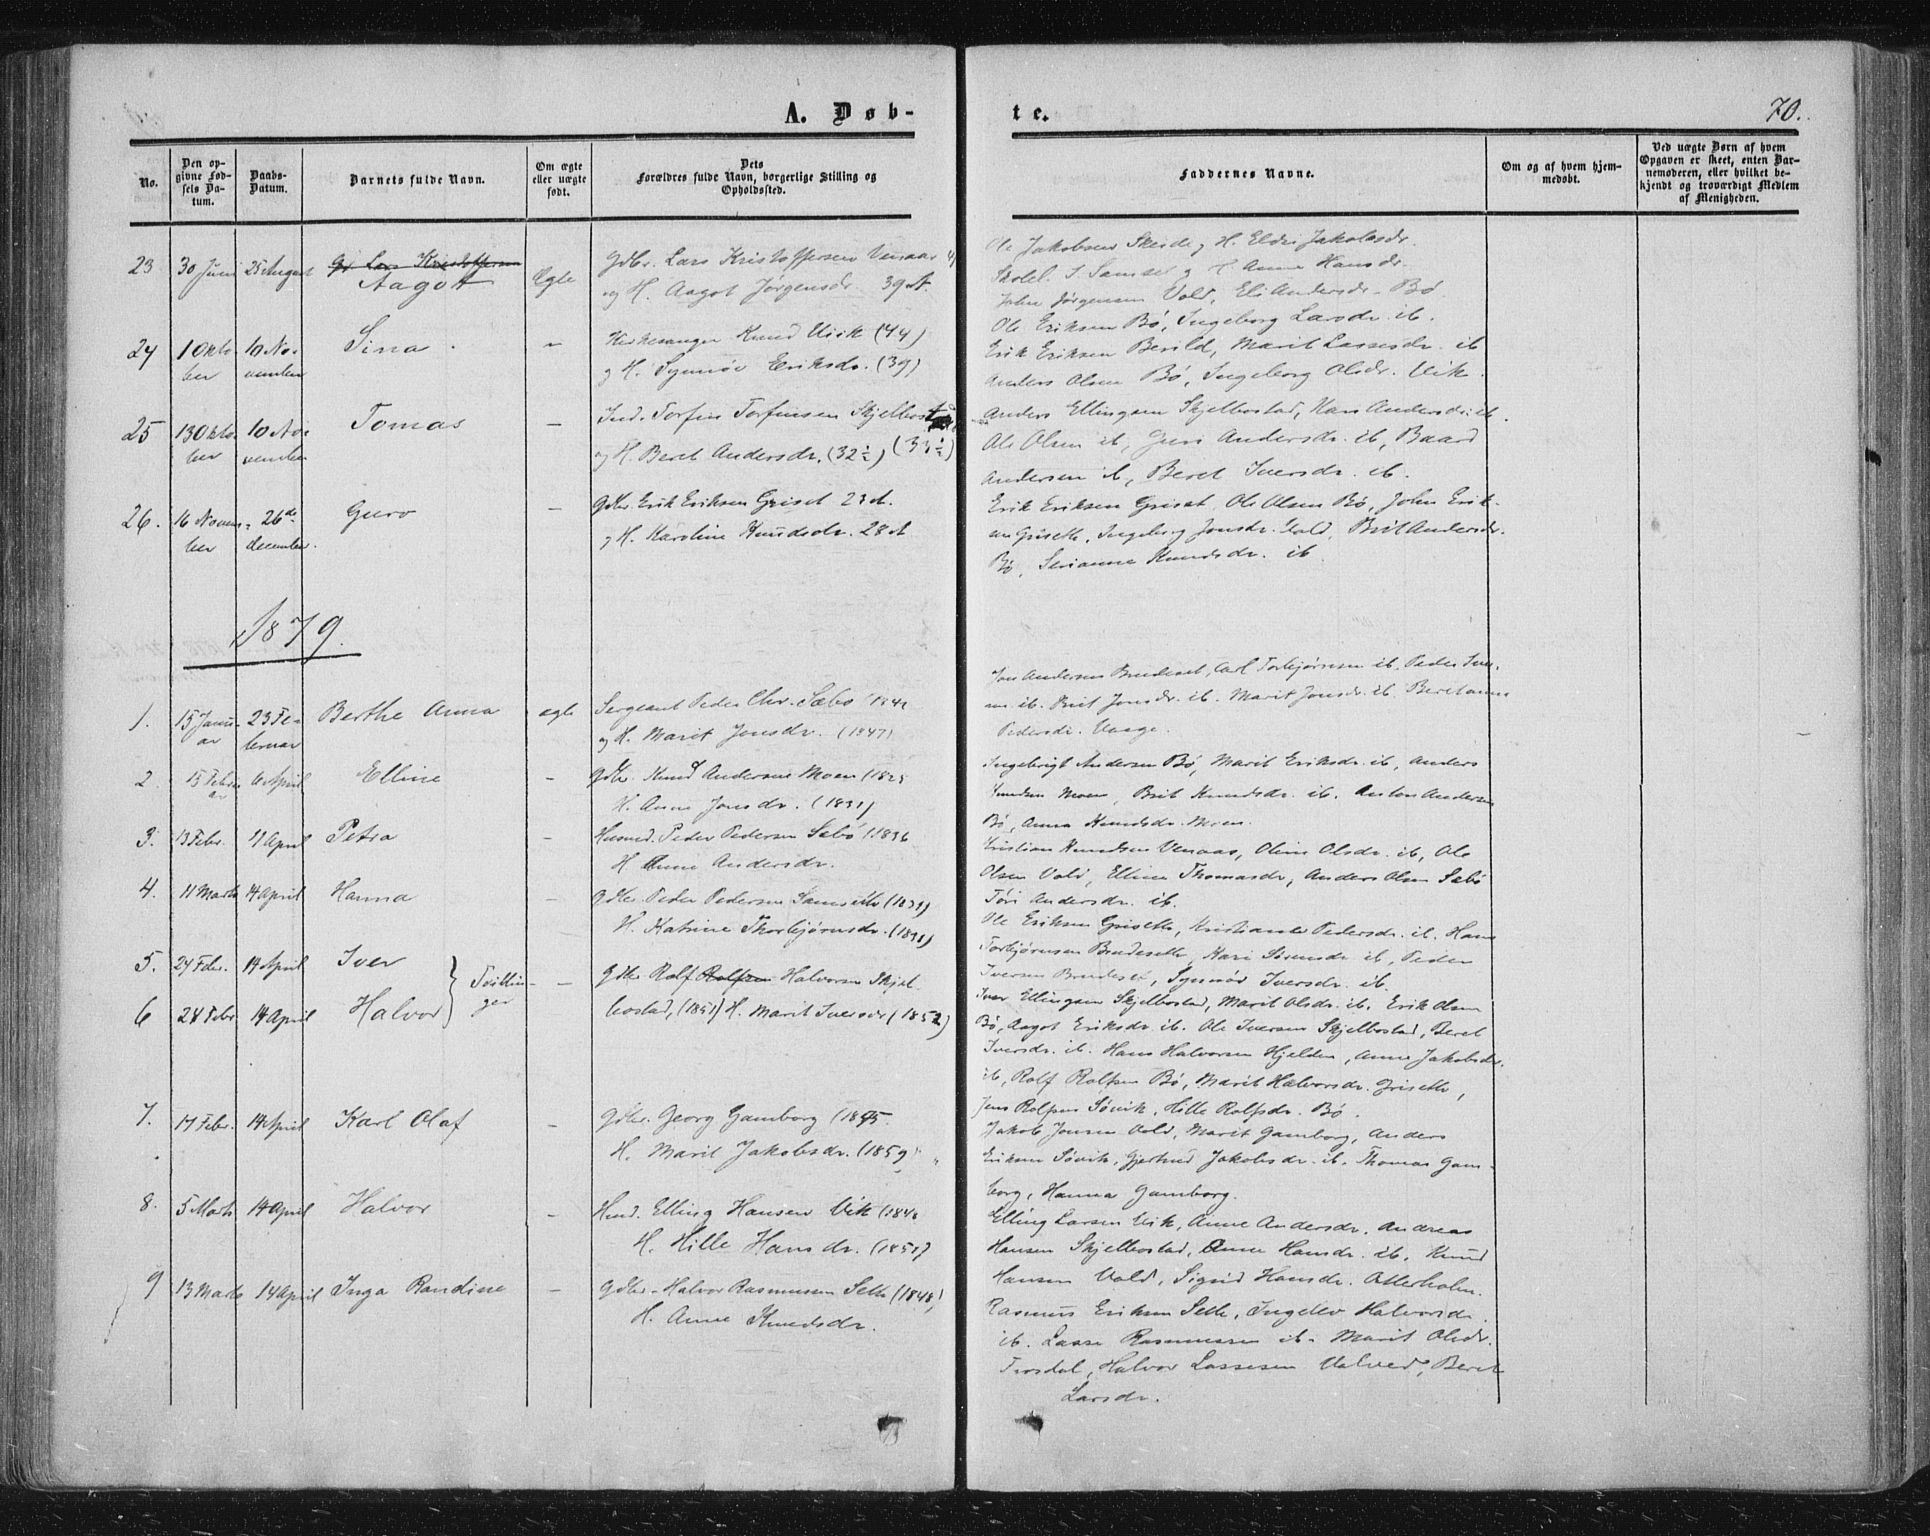 A. Døb-
te.
70.
No.
Den op-
givne Fød-
sels Da-
tum.
Daabs-
Datum.
Barnets fulde Navn.
Om ægte
eller uægte
født.
Dets
Forældres fulde Navn, borgerlige Stilling og
Opholdssted.
Faddernes Navne.
Om og af hvem hjem-
medøbt.
Ved uægte Børn af hvem
Opgaven er skeet, enten Bar-
nemoderen, eller hvilket be-
kjendt og troværdigt Medlem
af Menigheden.
23 30 Juni 25 August Gd Lars Kristoffersen
Aagot Ægte
Gdbr. Lars Kristoffersen Venaas
og H. Aagot Jørgensdr. 39 A.
Ole Jakobsen Skeide og H. Eldri Jakobsdr.
Skolel. S. Samset og H. Anne Hansdr.
John Jørgensen Vold, Eli Andersdr. Bø
24 1 Okto- 10 No- Sina
ber vember
Kirkesanger Knud Viik (44)
og H. Synnøv Eriksdr. (39)
Ole Eriksen Bø, Ingeborg Larsdr. ib.
Erik Eriksen Berild, Marit Lassesdr. ib
Anders Olsen Bø, Ingeborg Olsdr. Vik.
25 13 Okto- 10 No- Tomas —
ber vember
Ind. Torfin Torfinsen Skjelbostad
og H. Beret Andersdr. (32½) (33½)
Anders Ellingsen Skjelbostad, Kari Andersdr. ib.
Ole Olsen ib, Guri Andersdr. ib, Baard
Andersen ib, Beret Iversdr. ib.
26. 16 Novem- 26de Guro —
ber december.
Gdbr. Erik Eriksen Griset 23 A.
og H. Karoline Knudsdr. 28 A
Erik Eriksen Griset, Ole Olsen Bø, John Erik-
sen Grisett, Ingeborg Jonsdr. Vold, Brit Andersdr.
Bø, Serianna Knudsdr. ib.
1879.
1. 15 Janu- 23 Fe- Berthe Anna ægte
ar bruar
Sergeant Peder Chr. Sæbø
og H. Marit Jonsdr. (1847)
Jon Andersen Brudeset, Carl Torbjørnsen ib. Peder Iver-
sen ib. Brit Jonsdr. ib. Marit Jonsdr. ib. Beretanna
Pedersdr. Vaage.
2. 15 Febru- 6 April Elline —
ar
Gdbr. Knud Andersen Moen
H. Anne Jonsdr. (1831)
Ingebrigt Andersen Bø, Marit Eriksdr. ib, Anders
Knudsen Moen, Brit Knudsdr. ib. Anton Andersen
Bø, Anna Knudsdr. Moen.
3. 13 Febr. April Petra —
Husmd. Peder Pedersen Sæbø (1836
H Anne Andersdr.
Kristian Knudsen Venaas, Oline Olsdr. ib, Ole
Olsen Vold, Elline Thomasdr, Anders Olsen Sæbø
Tøri Andersdr. ib.
4. 11 Marts 14 April Hanna —
Gdbr. Peder Pedersen Samseth
H. Katrine Thorbjørnsdr.
Ole Eriksen Grisett, Kristianna Pedersdr. ib. Hans
Torbjørnsen Brudeseth, Kari Sørensdr. ib, Peder
Iversen Brudeset, Synnøv Iversdr. ib.
5. 24 Febr. 14 April Iver
6 24 Febr 14 April Halvor
Tvillin-
ger —
Gdbr. Rolf Rolfsen Halvorsen Skjel-
bostad, (1851) H. Marit Iversdr (1852)
Iver Ellingsen Skjelbostad, Marit Olsdr. ib. Erik Olsen
Bø, Aagot Eriksdr. ib. Ole Iversen Skjelbostad, Beret
Iversdr. ib. Hans Halvorsen Hjelden, Anne Jakobsdr.
ib, Rolf Rolfsen Bø, Marit Halvorsdr. Grisett,
Jens Rolfsen Søvik, Hille Rolfsdr. Bø.
7. 17 Febr. 14 April Karl Olaf —
Gdbr. Georg Gamborg
H. Marit Jakobsdr. (1859)
Jakob Jonsen Vold, Marit Gamborg, Anders
Eriksen Søvik, Gjertrud Jakobsdr. ib. Thomas Gam-
borg, Hanna Gamborg.
8. 5 Marts 14 April Halvor —
Husd. Elling Hansen Vik
H. Hille Hansdr. (1851)
Elling Larsen Vik, Anne Andersdr. Andreas
Hansen Skjelbostad, Anne Hansdr. ib. Knud
Hansen Vold, Sigrid Hansdr. Otterholm.
9 13 Marts 14 April Inga Randine —
Gdbr. Halvor Rasmussen Seth (1848)
H. Anne Knudsdr.
Rasmus Eriksen Seth, Ingelev Halvorsdr.
ib. Lasse Rasmussen ib. Marit Olsdr.
Frosdal, Halvor Lassesen Valved, Beret
Larsdr.